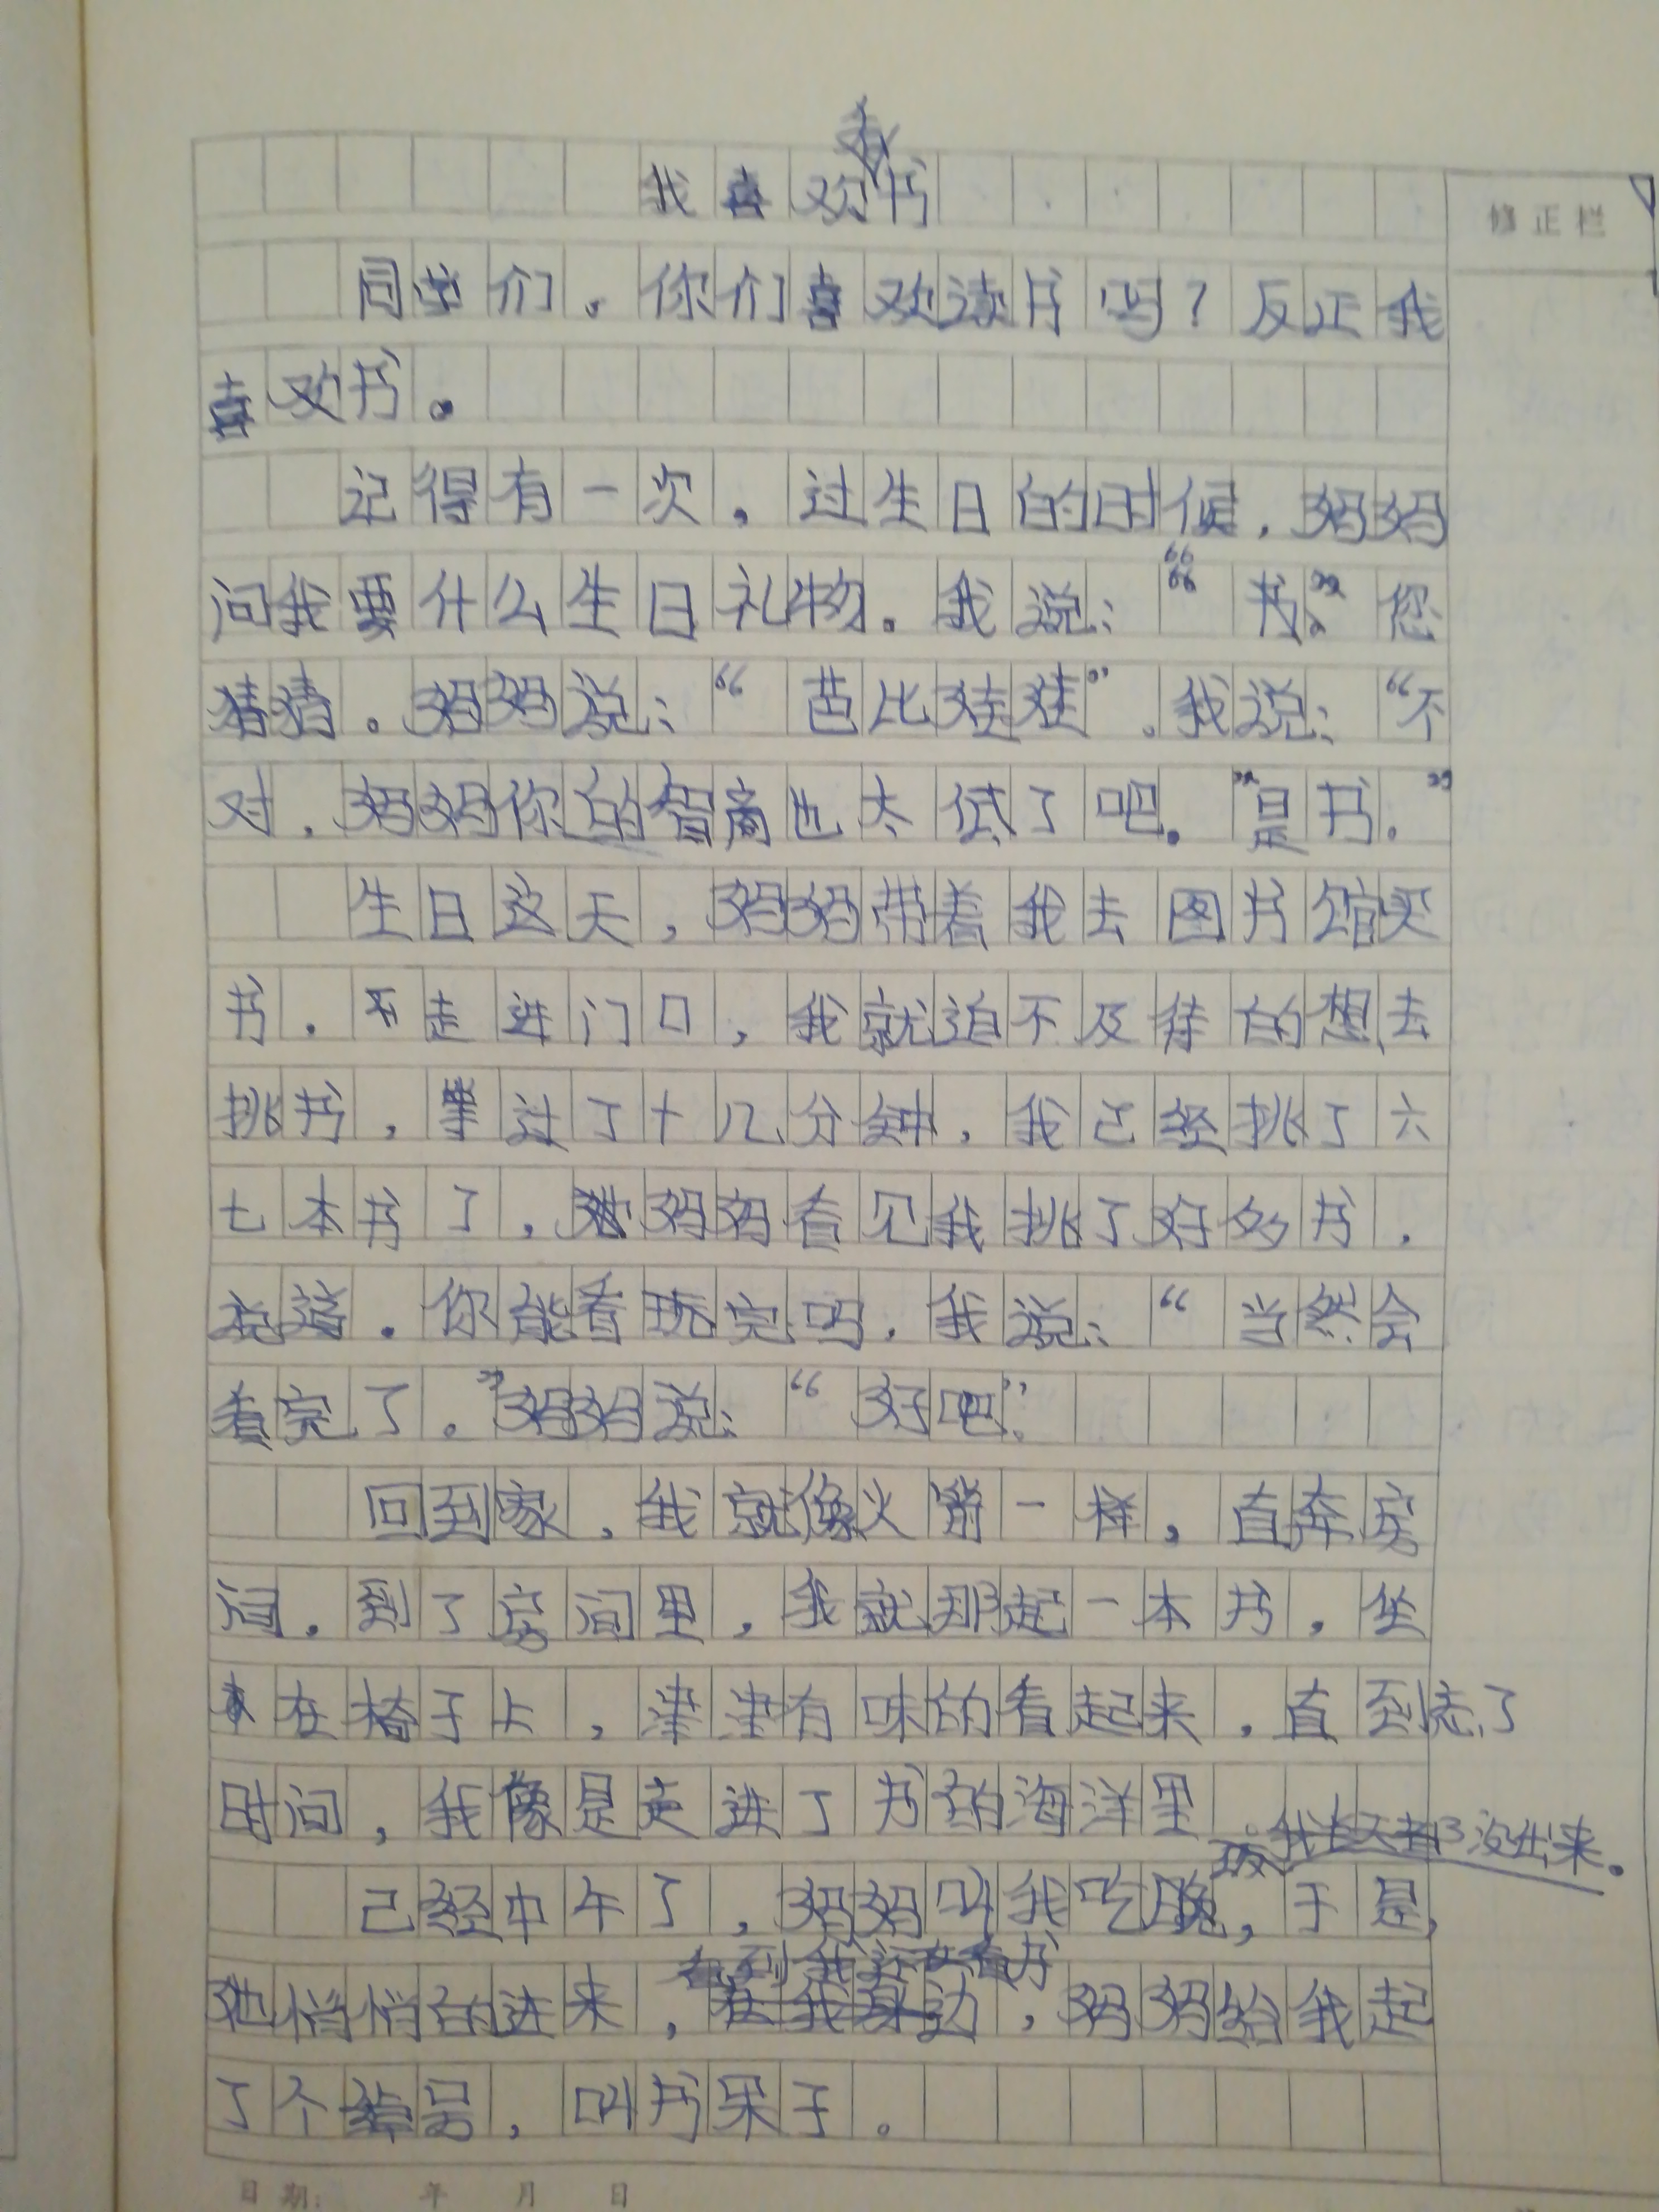 我喜欢书
修正栏
同学们。你们喜欢读书吗？反正我
喜欢书。
记得有一次，过生日的时候，妈妈
问我要什么生日礼物。我说：“书”。您
猜猜。妈妈说：“芭比娃娃”。我说：“不
对，妈妈你的智商也太低了吧。”是书。”
生日这天，妈妈带着我去图书馆买
书。走进门口，我就迫不及待的想去
挑书，过了十几分钟，我已经挑了六
七本书了，妈妈看见我挑了好多书，
说道。你能看玩完吗，我说：“当然会
看完了。”妈妈说：“好吧”。
回到家，我就像火箭一样，直奔房
间。到了房间里，我就那起一本书，坐
在椅子上，津津有味的看起来，直到忘了
时间，我像是走进了书的海洋里。
我半天都没出来。
已经中午了，妈妈叫我吃晚饭，于是，
看到我还在看书
她悄悄的进来，，妈妈给我起
了个号，叫书呆子。
日期： 年 月 日